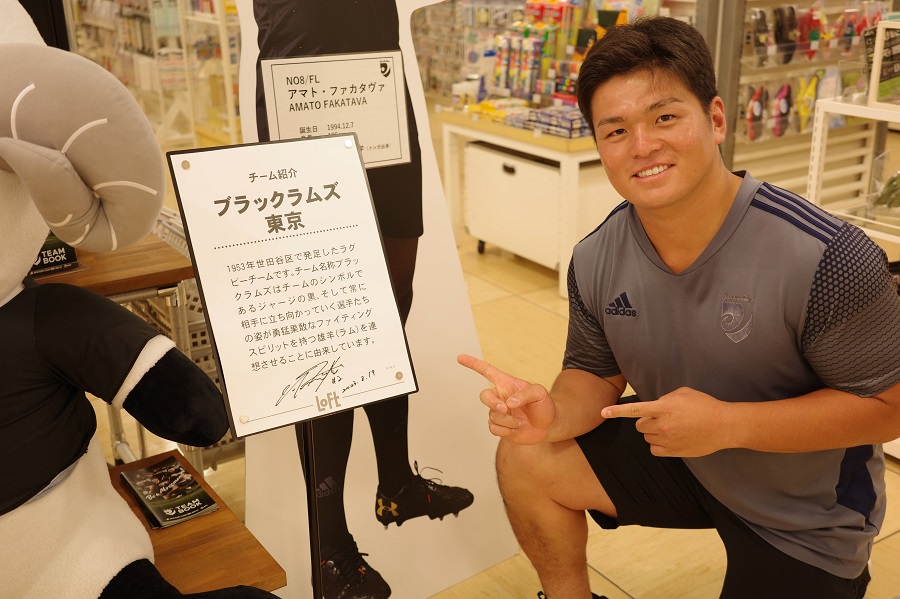 NO8/FL
アマト・ファカタヴァ
AMATO FAKATAVA
誕生日 1994.12.7
チーム紹介
ブラックラムズ
東京
1953年世田谷区で発足したラグ
ビーチームです。チーム名称ブラッ
クラムズはチームのシンボルで
あるジャージの黒、そして常に
相手に立ち向かっていく選手たち
の姿が勇猛果敢なファイティング
スピリットを持つ雄羊(ラム)を連
想させることに由来しています。
#2
LOFT
TEAM
BOOK
TEAM
BOOK
adidas